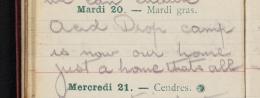 we can
Mardi 20. — Mardi gras.
Acid Drop camp
is now our home
just a home thats all
Mercredi 21. — Cendres.